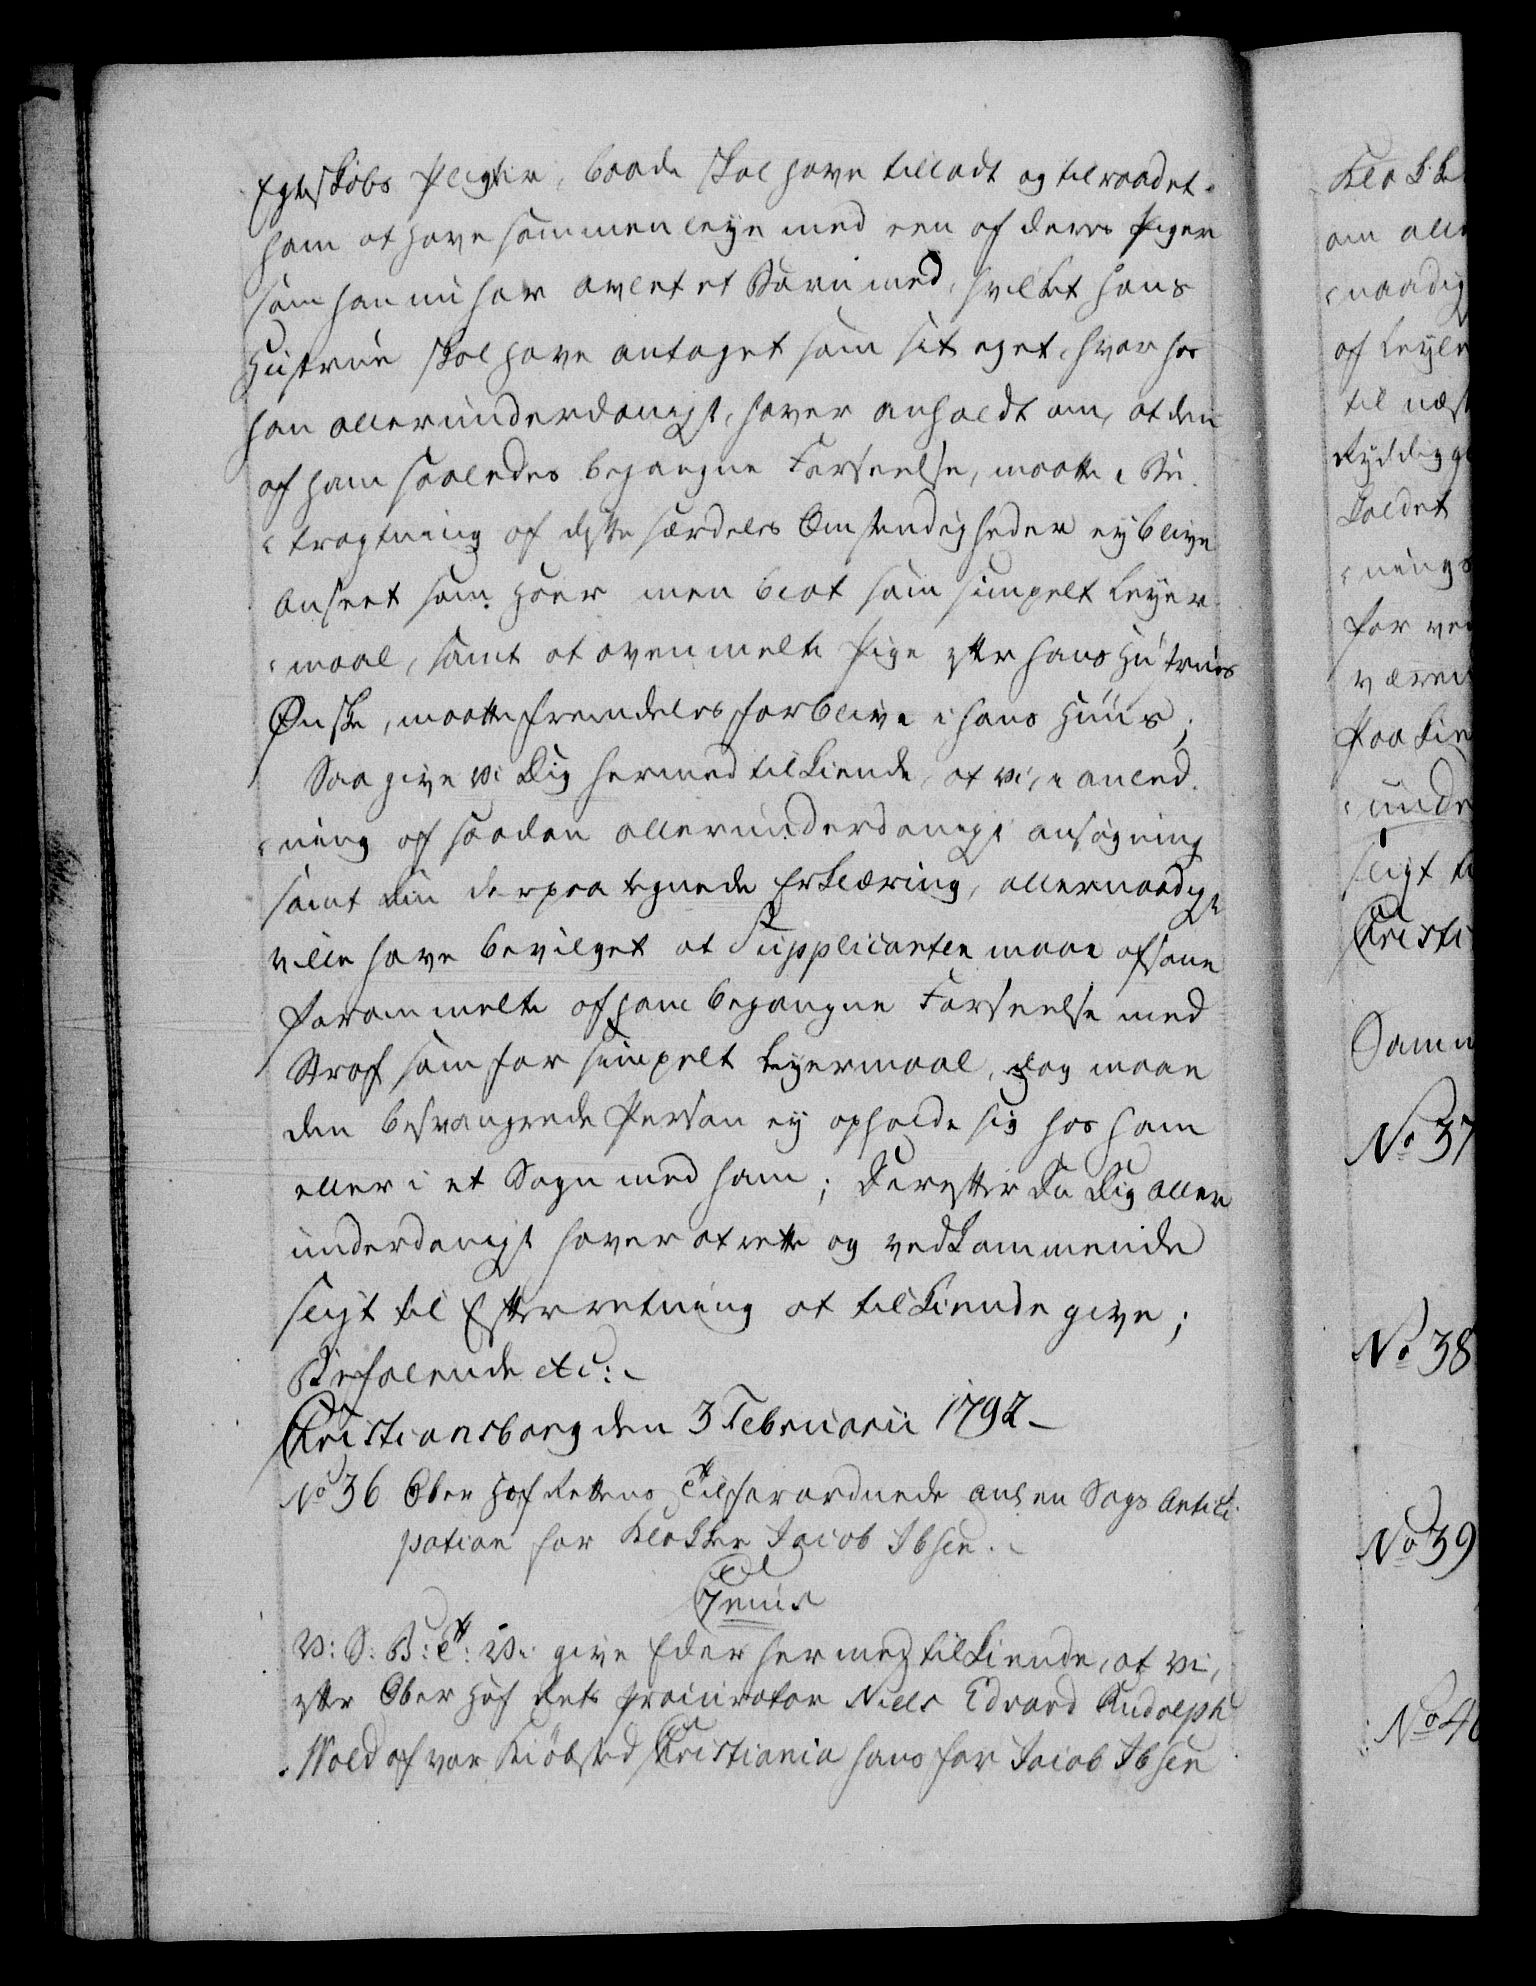 Egteskabs Pligter, baade skal have tilladt og tilraadet
ham at have sammenleye med een af deres Piger
som han nu har avlet et Barn med, hvilket hans
Hustrue skal have antaget som sit eget, hvorhos
han allerunderdanigst haver anholdt om, at den
af ham saaledes begangne Forseelse, maatte i Be¬
tragtning af disse særdeles Omstændigheder ey blive
anseet som Hoer men blot som simpelt Leyer¬
maal, samt at ovenmelte Pige efter hans Hustrues
Ønske, maatte fremdeles forblive i hans Huus;
Saa give vi Dig hermed tilkiende, at vi, i anled¬
ning af saadan allerunderdanigst ansøgning
samt din derpaa tegnede Erklæring, allernaadigst
ville have bevilget at Supplicanten maae afsone
formmelte af ham begangne Forseelse med
Straf som for simpelt Leyermaal, dog maae
den besvangrede Person ey opholde sig hos ham
eller i et Sogn med ham; Derefter Du Dig aller
underdanigst haver at rette og vedkommende
sligt til Efterretning at tilkiende give;
Befalende etc:
Christiansborg den 3 Februarii 1792
No 36 Ober Hof Rettens Tilforordnede anl en Sags Antici¬
pation for Klokker Jacob Ibsen.
C7enus
V: S: B: T: Vi give Eder hermed tilkiende, at vi,
efter Ober Hof Rets Procurator Niels Edvard Rudolph
Wold af vor Kiøbsted Christiania hans for Jacob Ibsen
Klokk
om alle
naadig
af Leyle
til næst
Ryddigg
Kaldet
nings
for ve
væren
paa Kie
unde
sligt ti
Christi
Samm
No 37
No 38
No 39
No 40